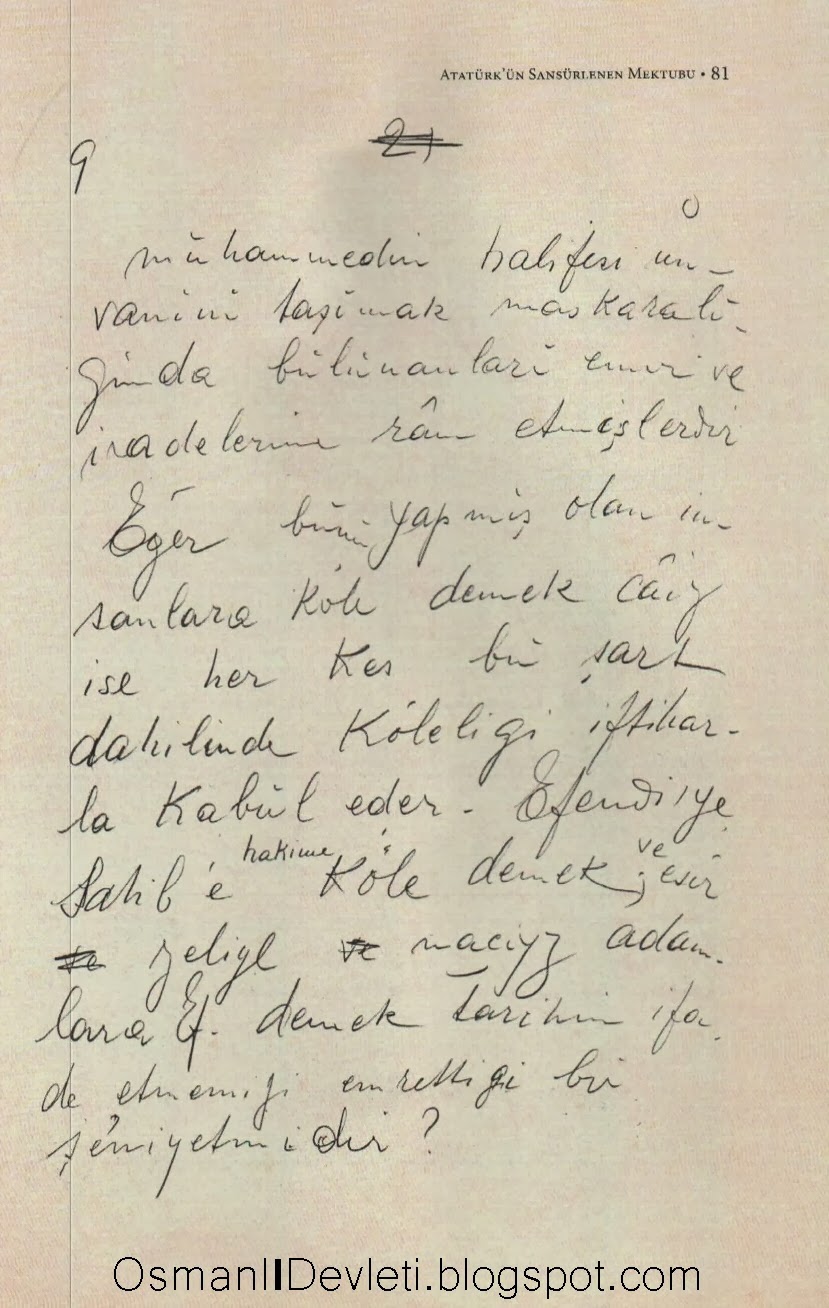 ATATÜRK'ÜN SANSÜRLENEN MEKTUBU • 81
9 21
O
mühammedin halifesi ün-
vanini taşimak maskarali-
ğinda bülünanlari emri ve
iradelerine râm etmişlerdir
Eğer bünü yapmiş olan in-
sanlara köle demek câiz
ise her kes bü şart
dahilinde Köleligi iftihar-
la Kabül eder. Efendiye
Sahib'e hakime Köle demek ve esir
ve zelil ve naciyz adam-
lara Ef. demek tarihin ifa-
de etmemizi emrettigi bir
şe'niyetmidir?
OsmanlIDevleti.blogspot.com